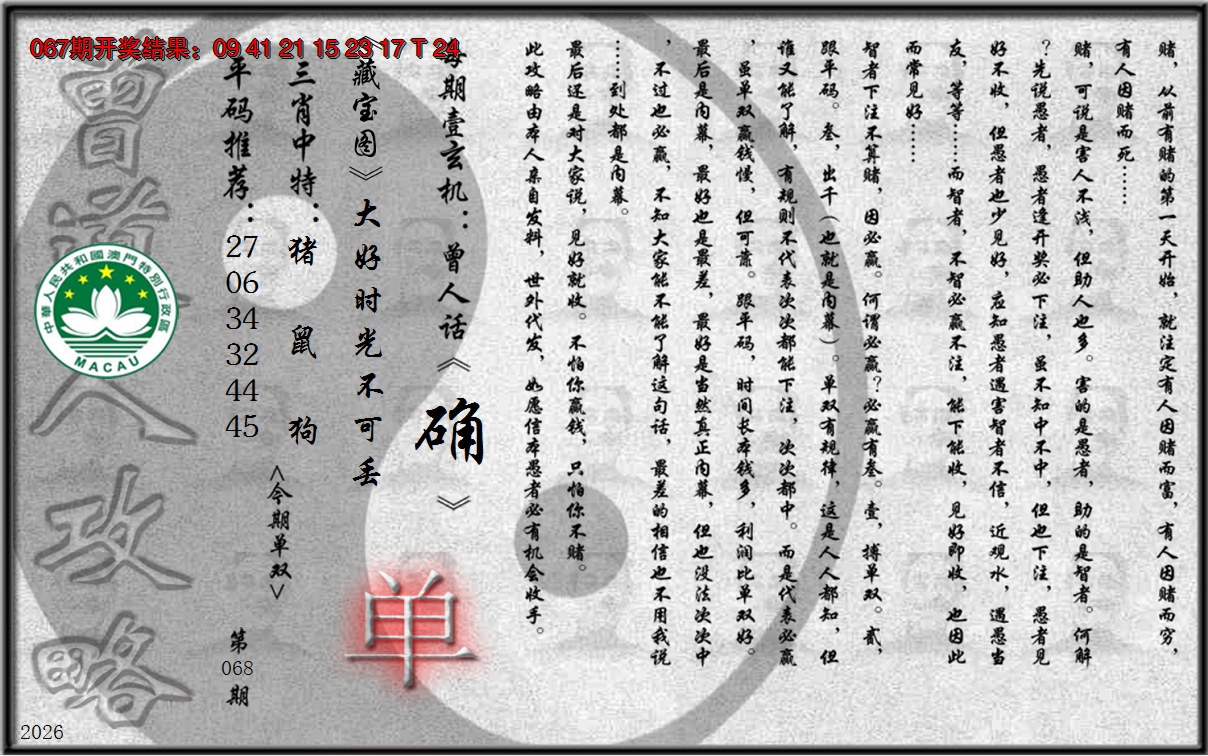 067期开奖结果：09 41 21 15 23 17 T 24
赌，从前有赌的第一天开始，就注定有人因赌而富，有人因赌而穷，
有人因赌而死……
赌，可说是害人不浅，但助人也多。害的是愚者，助的是智者。何解
？先说愚者，愚者逢开奖必下注，虽不知中不中，但也下注，愚者见
好不收，但愚者也少见好，应知愚者遇害智者不信，近观水，遇愚当
友，等等……而智者，不智必赢不注，能下能收，见好即收，也因此
而常见好……
智者下注不算赌，因必赢。何谓必赢？必赢有叁。壹，搏单双。贰，
跟平码。叁，出千（也就是内幕）。单双有规律，这是人人都知，但
谁又能了解，有规则不代表次次都能下注，次次都中。而是代表必赢
，虽单双赢钱慢，但可靠。跟平码，时间长本钱多，利润比单双好。
最后是内幕，最好也是最差，最好是当然真正内幕，但也没法次次中
，不过也必赢，不知大家能不能了解这句话，最差的相信也不用我说
……到处都是内幕。
最后还是对大家说，见好就收。不怕你赢钱，只怕你不赌。
此攻略由本人亲自发料，世外代发，如愿信本愚者必有机会收手。
每期壹玄机：曾人话《确》
《藏宝图》大好时光不可丢
单
三肖中特：猪 鼠 狗
<今期单双>
平码推荐：27 06 34 32 44 45
第068期
曾道人攻略
中華人民共和國澳門特別行政區
MACAU
2026